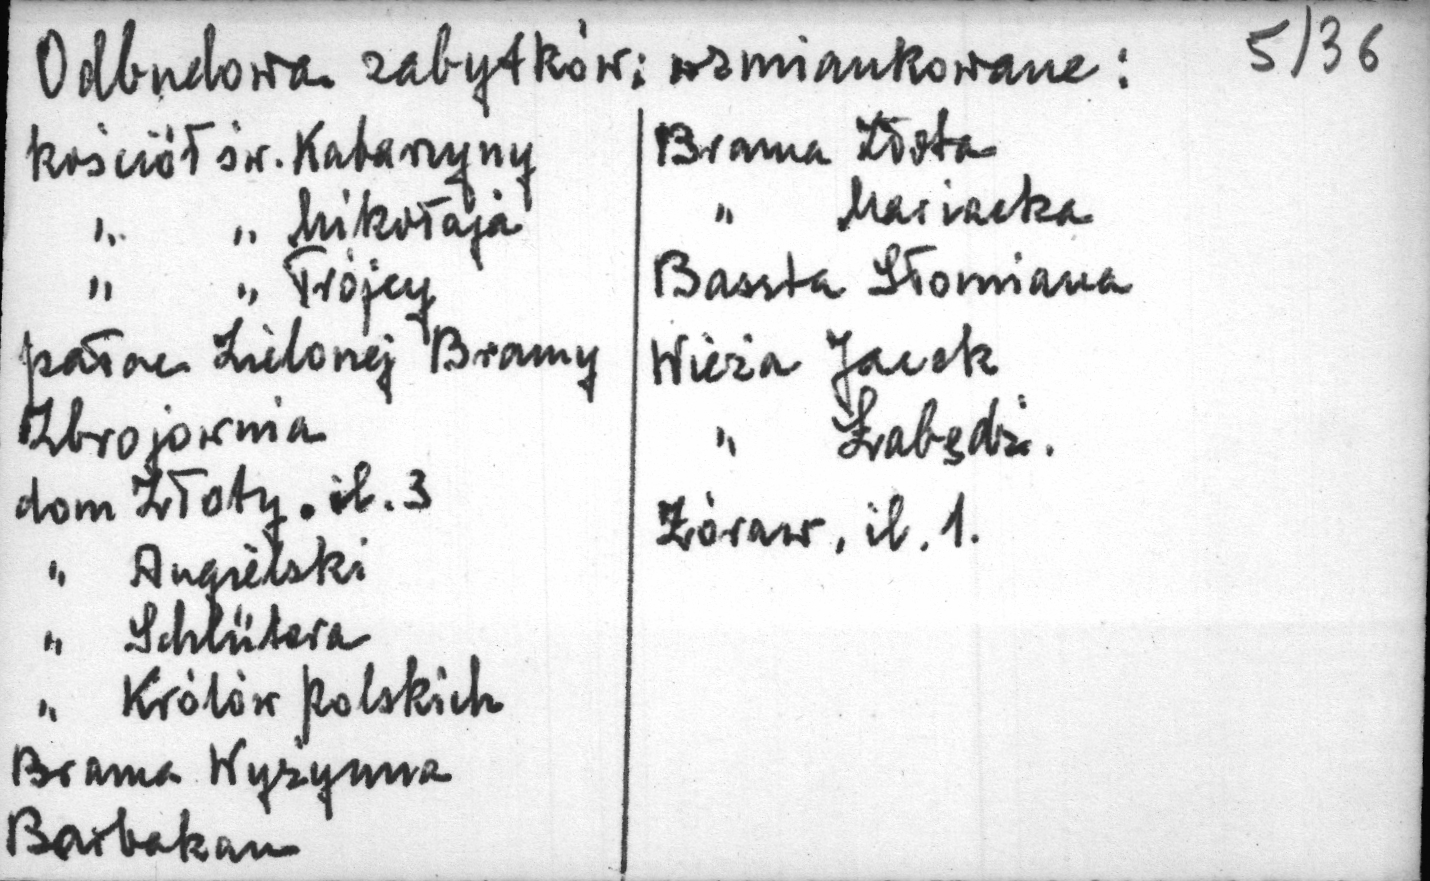 Odbudowa zabytków; wzmiankowane: 5/36
kościół św. Katarzyny
" " Mikołaja
" " Trójcy
pałac Zielonej Bramy
Zbrojownia
dom Złoty. il. 3
" Angielski
" Schlütera
" Królów polskich
Brama Wyżynna
Barbakan
Brama Złota
" Mariacka
Baszta Słomiana
Wieża Jacek
" Łabędź.
Żóraw, il. 1.